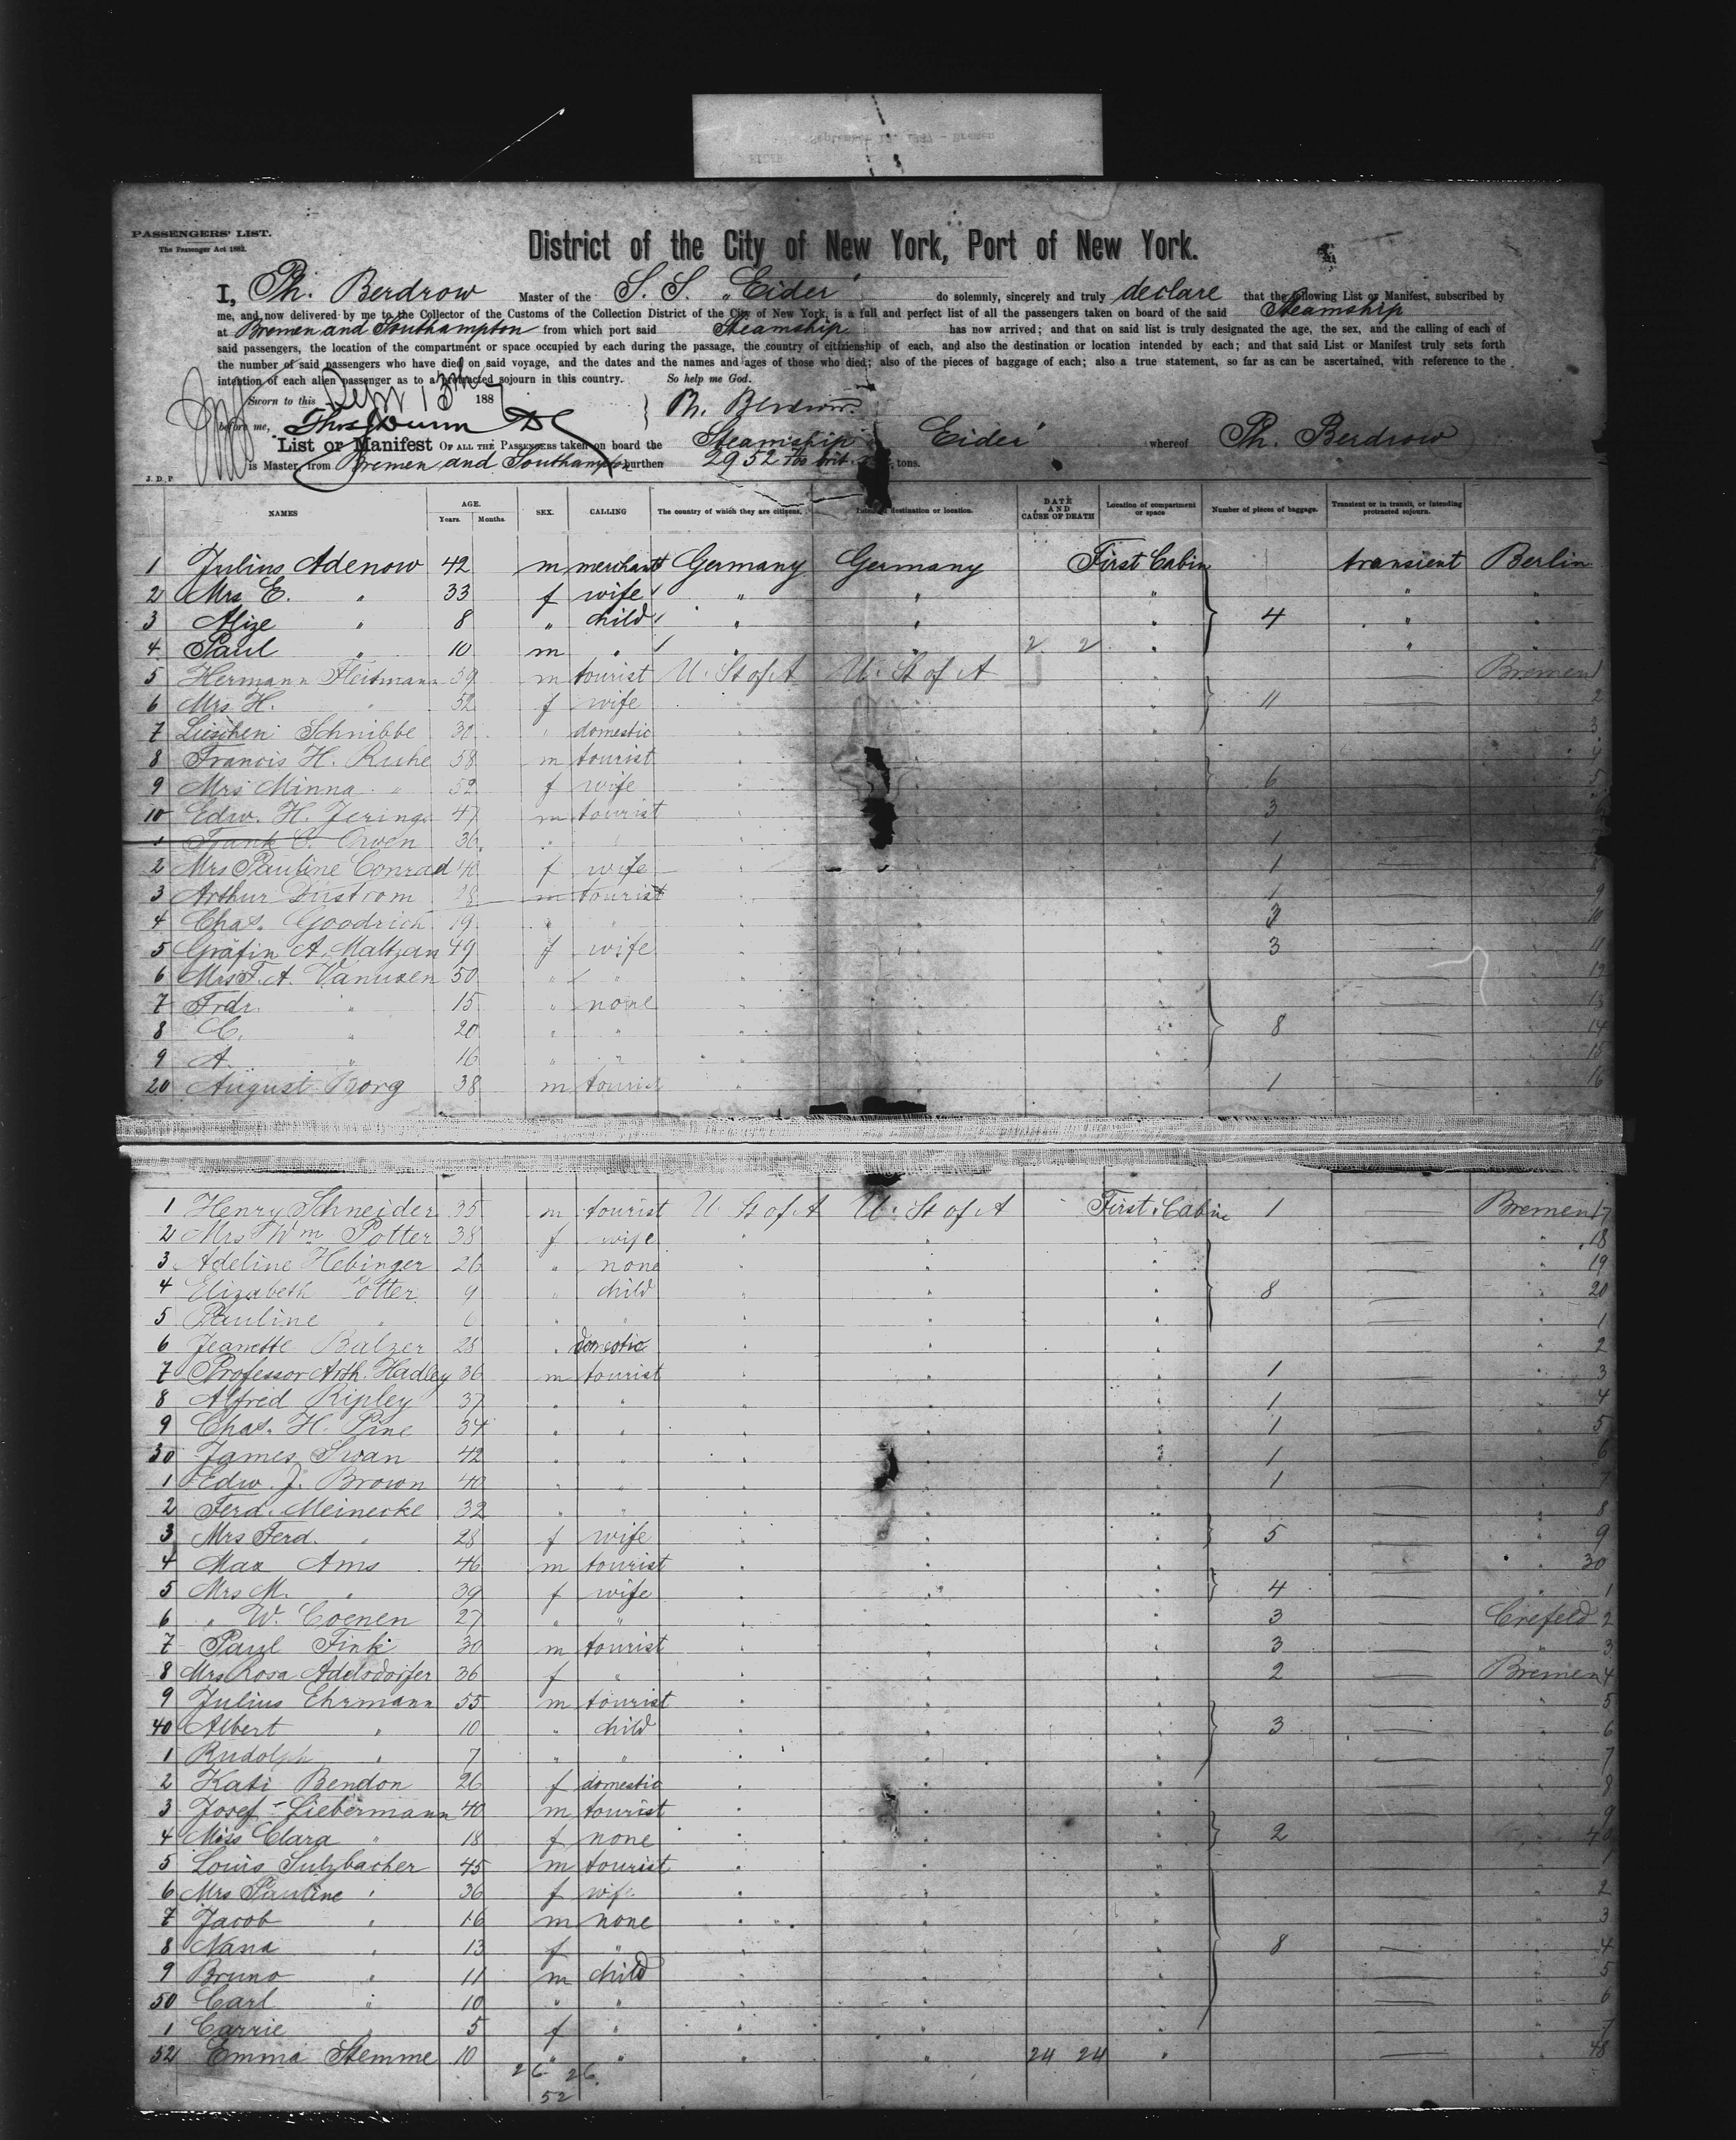 PASSENGERS' LIST.
The Passenger Act 1882.
District of the City of New York, Port of New York.
I, Ph. Berdrow Master of the S. S. „Eider" do solemnly, sincerely and truly declare that the following List or Manifest, subscribed by
me, and now delivered by me to the Collector of the Customs of the Collection District of the City of New York, is a full and perfect list of all the passengers taken on board of the said Steamship
at Bremen and Southampton from which port said Steamship has now arrived; and that on said list is truly designated the age, the sex, and the calling of each of
said passengers, the location of the compartment or space occupied by each during the passage, the country of citizenship of each, and also the destination or location intended by each; and that said List or Manifest truly sets forth
the number of said passengers who have died on said voyage, and the dates and the names and ages of those who died; also of the pieces of baggage of each; also a true statement, so far as can be ascertained, with reference to the
intention of each alien passenger as to a protracted sojourn in this country. So help me God.
Sworn to this Sept 13 188
before me, Thos Dunn DC Ph. Berdrow
List or Manifest OF ALL THE PASSENGERS taken on board the Steamship Eider whereof Ph. Berdrow
is Master, from Bremen and Southampton burthen 2952 tons.
J. D. P
NAMES AGE. Years. Months. SEX. CALLING The country of which they are citizens. Intended destination or location. DATE AND CAUSE OF DEATH Location of compartment or space Number of pieces of baggage. Transient or in transit, or intending protracted sojourn.
1 Julius Adenow 42 m merchant Germany Germany First Cabin transient Berlin
2 Mrs E. " 33 f wife " " " " "
3 Alize " 8 " child " " " 4 " "
4 Paul " 10 m " " " 2 2 " "
5 Hermann Fleitmann 59 m tourist U. St of A U. St of A — Bremen 1
6 Mrs H. " 52 f wife " " " 11 — 2
7 Lieschen Schnibbe 30 " domestic " " " — 3
8 Francis H. Ruhe 58 m tourist " " — 4
9 Mrs Minna " 52 f wife " " 6 — 5
10 Edw. H. Jering 47 m tourist " " 3 — 6
1 Frank C. Owen 36 " " " 1 — 7
2 Mrs Pauline Conrad 40 f wife " 1 — 8
3 Arthur m tourist " " 1 — 9
4 Chas. Goodrich 19 " " " " 3 — 10
5 Gräfin A. Maltzan 49 f wife " " " 3 — 11
6 Mrs T. A. Vanuxen 50 " " " " " — 12
7 Frdr. " 15 " none " " " — 13
8 C. " 20 " " " " " 8 — 14
9 A. " 16 " " " " " — 15
20 August Borg 38 m tourist " " " 1 — 16
1 Henry Schneider 35 m tourist U. St of A U. St of A First Cabin 1 — Bremen 17
2 Mrs Wm Potter 38 f wife " " " — " 18
3 Adeline Hebinger 26 " none " " " — " 19
4 Elizabeth Potter 9 " child " " " 8 — " 20
5 Pauline " 6 " " " " " — " 1
6 Jeanette Balzer 28 " domestic " " " — " 2
7 Professor Arth. Hadley 36 m tourist " " " 1 — " 3
8 Alfred Ripley 37 " " " " " 1 — " 4
9 Chas. H. Pine 34 " " " " " 1 — " 5
30 James Swan 42 " " " " " 1 — " 6
1 Edw. J. Brown 40 " " " " " 1 — " 7
2 Ferd. Meinecke 32 " " " " " — " 8
3 Mrs Ferd. " 28 f wife " " " 5 — " 9
4 Max Ams 46 m tourist " " " — " 30
5 Mrs M. " 39 f wife " " " 4 — " 1
6 " W. Coenen 27 " " " " " 3 — Crefeld 2
7 Paul Fink 30 m tourist " " " 3 — " 3
8 Mrs Rosa Adelsdorfer 36 f " " " " 2 — Bremen 4
9 Julius Ehrmann 55 m tourist " " " — " 5
40 Albert " 10 " child " " " 3 — " 6
1 Rudolph " 7 " " " " " — " 7
2 Kati Bendon 26 f domestic " " " — " 8
3 Josef Liebermann 40 m tourist " " " — " 9
4 Miss Clara " 18 f none " " " 2 — " 40
5 Louis Sulzbacher 45 m tourist " " " — " 1
6 Mrs Pauline " 36 f wife " " " — " 2
7 Jacob " 16 m none " " " — " 3
8 Nana " 13 f " " " " 8 — " 4
9 Bruno " 11 m child " " " — " 5
50 Carl " 10 " " " " " — " 6
1 Carrie " 5 f " " " " — " 7
52 Emma Stemme 10 " " " " 24 24 " — " 48
26 26
52